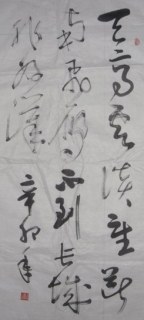 天高云淡望断
南飞雁不到长城
非好汉
辛卯年